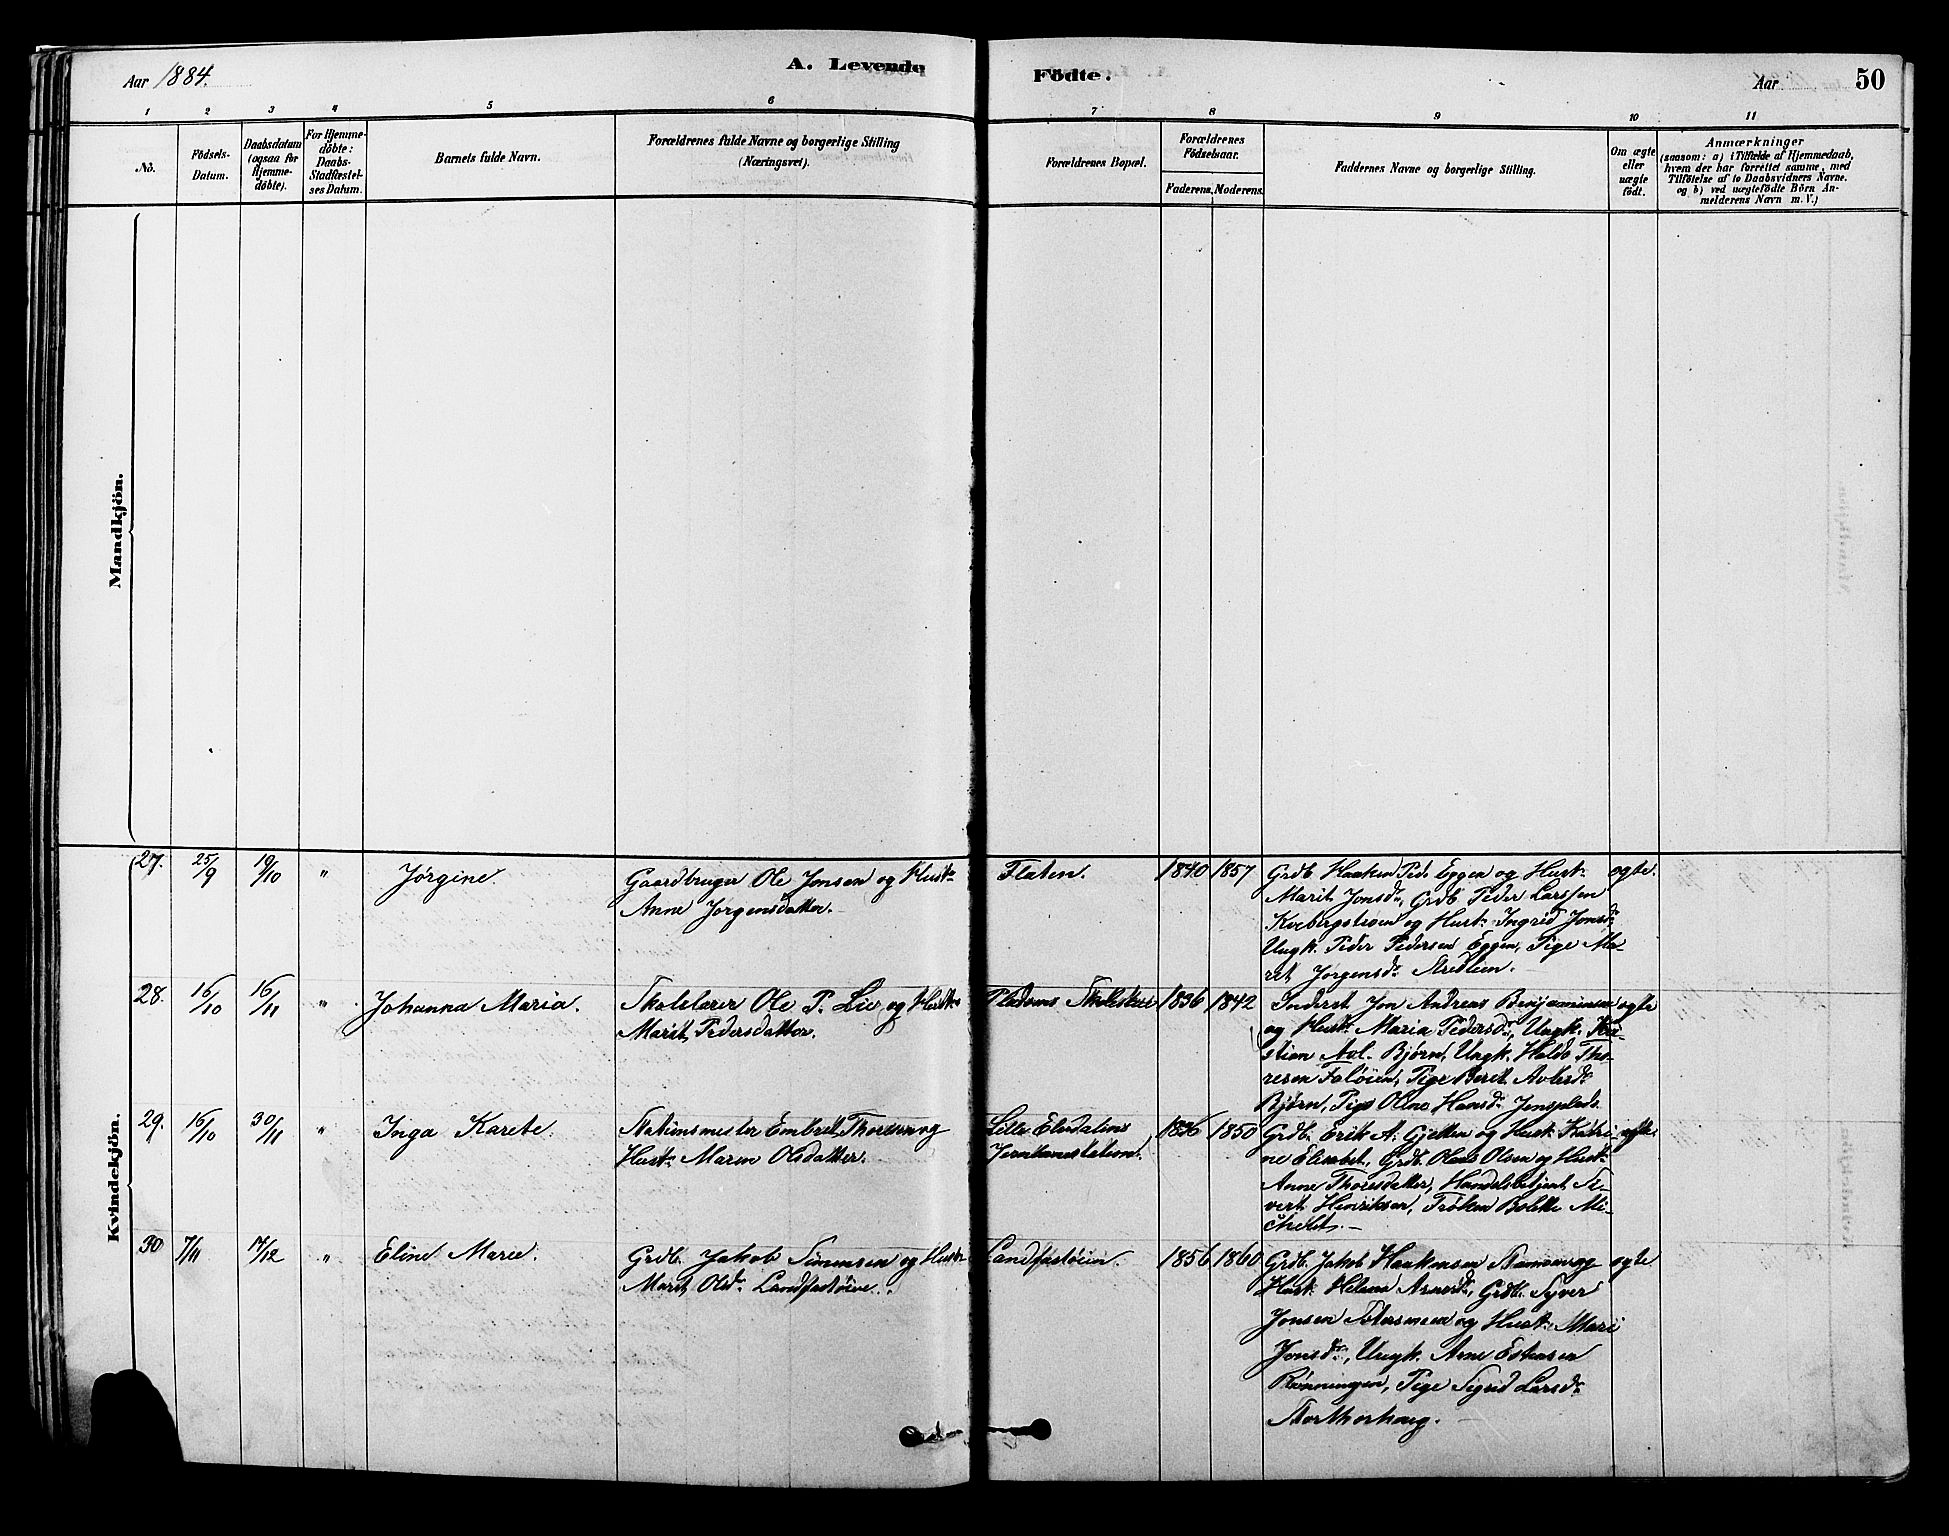 Aar 1884.
A. Levende
Födte.
Aar
50
1 2 3 4 5 6 7 8 9 10 11
No.
Födsels-
Datum.
Daabsdatum
(ogsaa for
Hjemme-
döbte).
For Hjemme-
döbte:
Daabs-
Stadfæstel-
ses Datum.
Barnets fulde Navn.
Forældrenes fulde Navne og borgerlige Stilling
(Næringsvei).
Forældrenes Bopæl.
Forældrenes
Födselsaar.
Faderens. Moderens.
Faddernes Navne og borgerlige Stilling.
Om ægte
eller
uægte
födt.
Anmærkninger
(saasom: a) i Tilfælde af Hjemmedaab,
hvem der har forrettet samme, med
Tilföielse af to Daabsvidners Navne.
og b) ved uægtefödte Börn An-
melderens Navn m. V.)
Mandkjön.
Kvindekjön.
27. 25/9 19/10 " Jørgine.
Gaardbruger Ole Jonsen og Hust.
Anne Jørgensdatter.
Flaten. 1840 1857
Grdb. Haaken Peds. Eggen og Hust.
Marit Jonsd., Grdb. Peder Larssen
Kvebergstrøen og Hust. Ingrid Jonsd.
Ungk. Peder Pedersen Eggen, Pige Ma-
rit Jørgensd. Stredlien.
ægte.
28. 16/10 16/11 " Johanna Maria.
Skolelærer Ole P. Lie og Hust.
Marit Pedersdatter.
1836 1842
Inderst Jon Andreas Benjaminsen
og Hust. Maria Pedersd., Ungk. Kri-
stian Axl. Bjørn, Ungk. Haldo Tho-
resen Faløien, Pige Berit
Bjørn, Pige Oline Hansd. Jensplads.
ægte
29. 16/10 30/11 " Inga Karete.
Stationsmester Embret Thoresen og
Hust. Maren Olsdatter.
Lille Elvdalens
Jernbanestation.
1836 1850
Grdb. Erik A. Gjelten og Hust. Katri-
ne Elisabet, Grdb. Olaus Olsen og Hust.
Anne Thoresdatter, Handelsbetjent Si-
vert Henriksen, Frøken Bolette Mi-
chelet.
ægte.
30 7/11 17/12 " Eline Marie.
Grdb. Jakob Simensen og Hust.
Marit Olsd. Landfastøien.
Landfastøien. 1856 1860
Grdb. Jakob Haakensen Strømmen og
Hust. Helena Arnesd., Grdb. Syver
Jonsen Steimoen og Hust. Mari
Jonsd., Ungk. Arne Estensen
Rønningen, Pige Sigrid Larsd.
Storthorhaug.
ægte